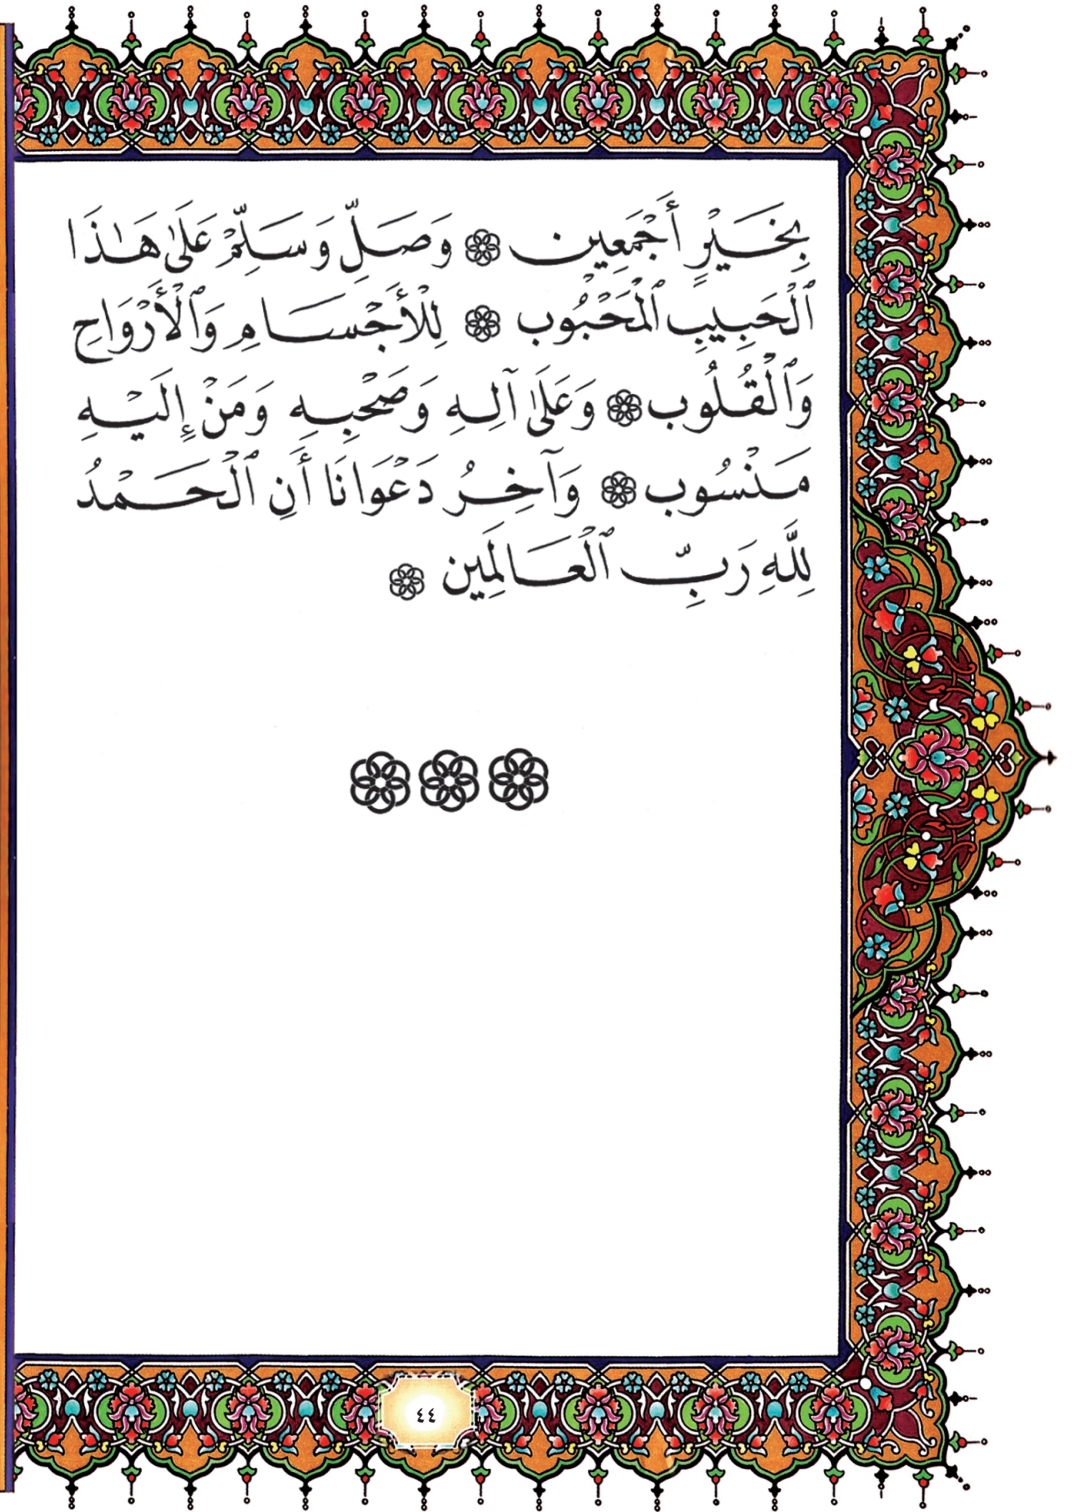 بِخَيْرٍ أَجْمَعِين ۞ وَصَلِّ وَسَلِّمْ عَلَىٰ هَـٰذَا
ٱلْحَبِيبِ ٱلْمَحْبُوب ۞ لِلْأَجْسَامِ وَٱلْأَرْوَاحِ
وَٱلْقُلُوب ۞ وَعَلَىٰ آلِهِ وَصَحْبِهِ وَمَنْ إِلَيْهِ
مَنْسُوب ۞ وَآخِرُ دَعْوَانَا أَنِ ٱلْحَمْدُ
لِلَّهِ رَبِّ ٱلْعَالَمِين ۞
٤٤